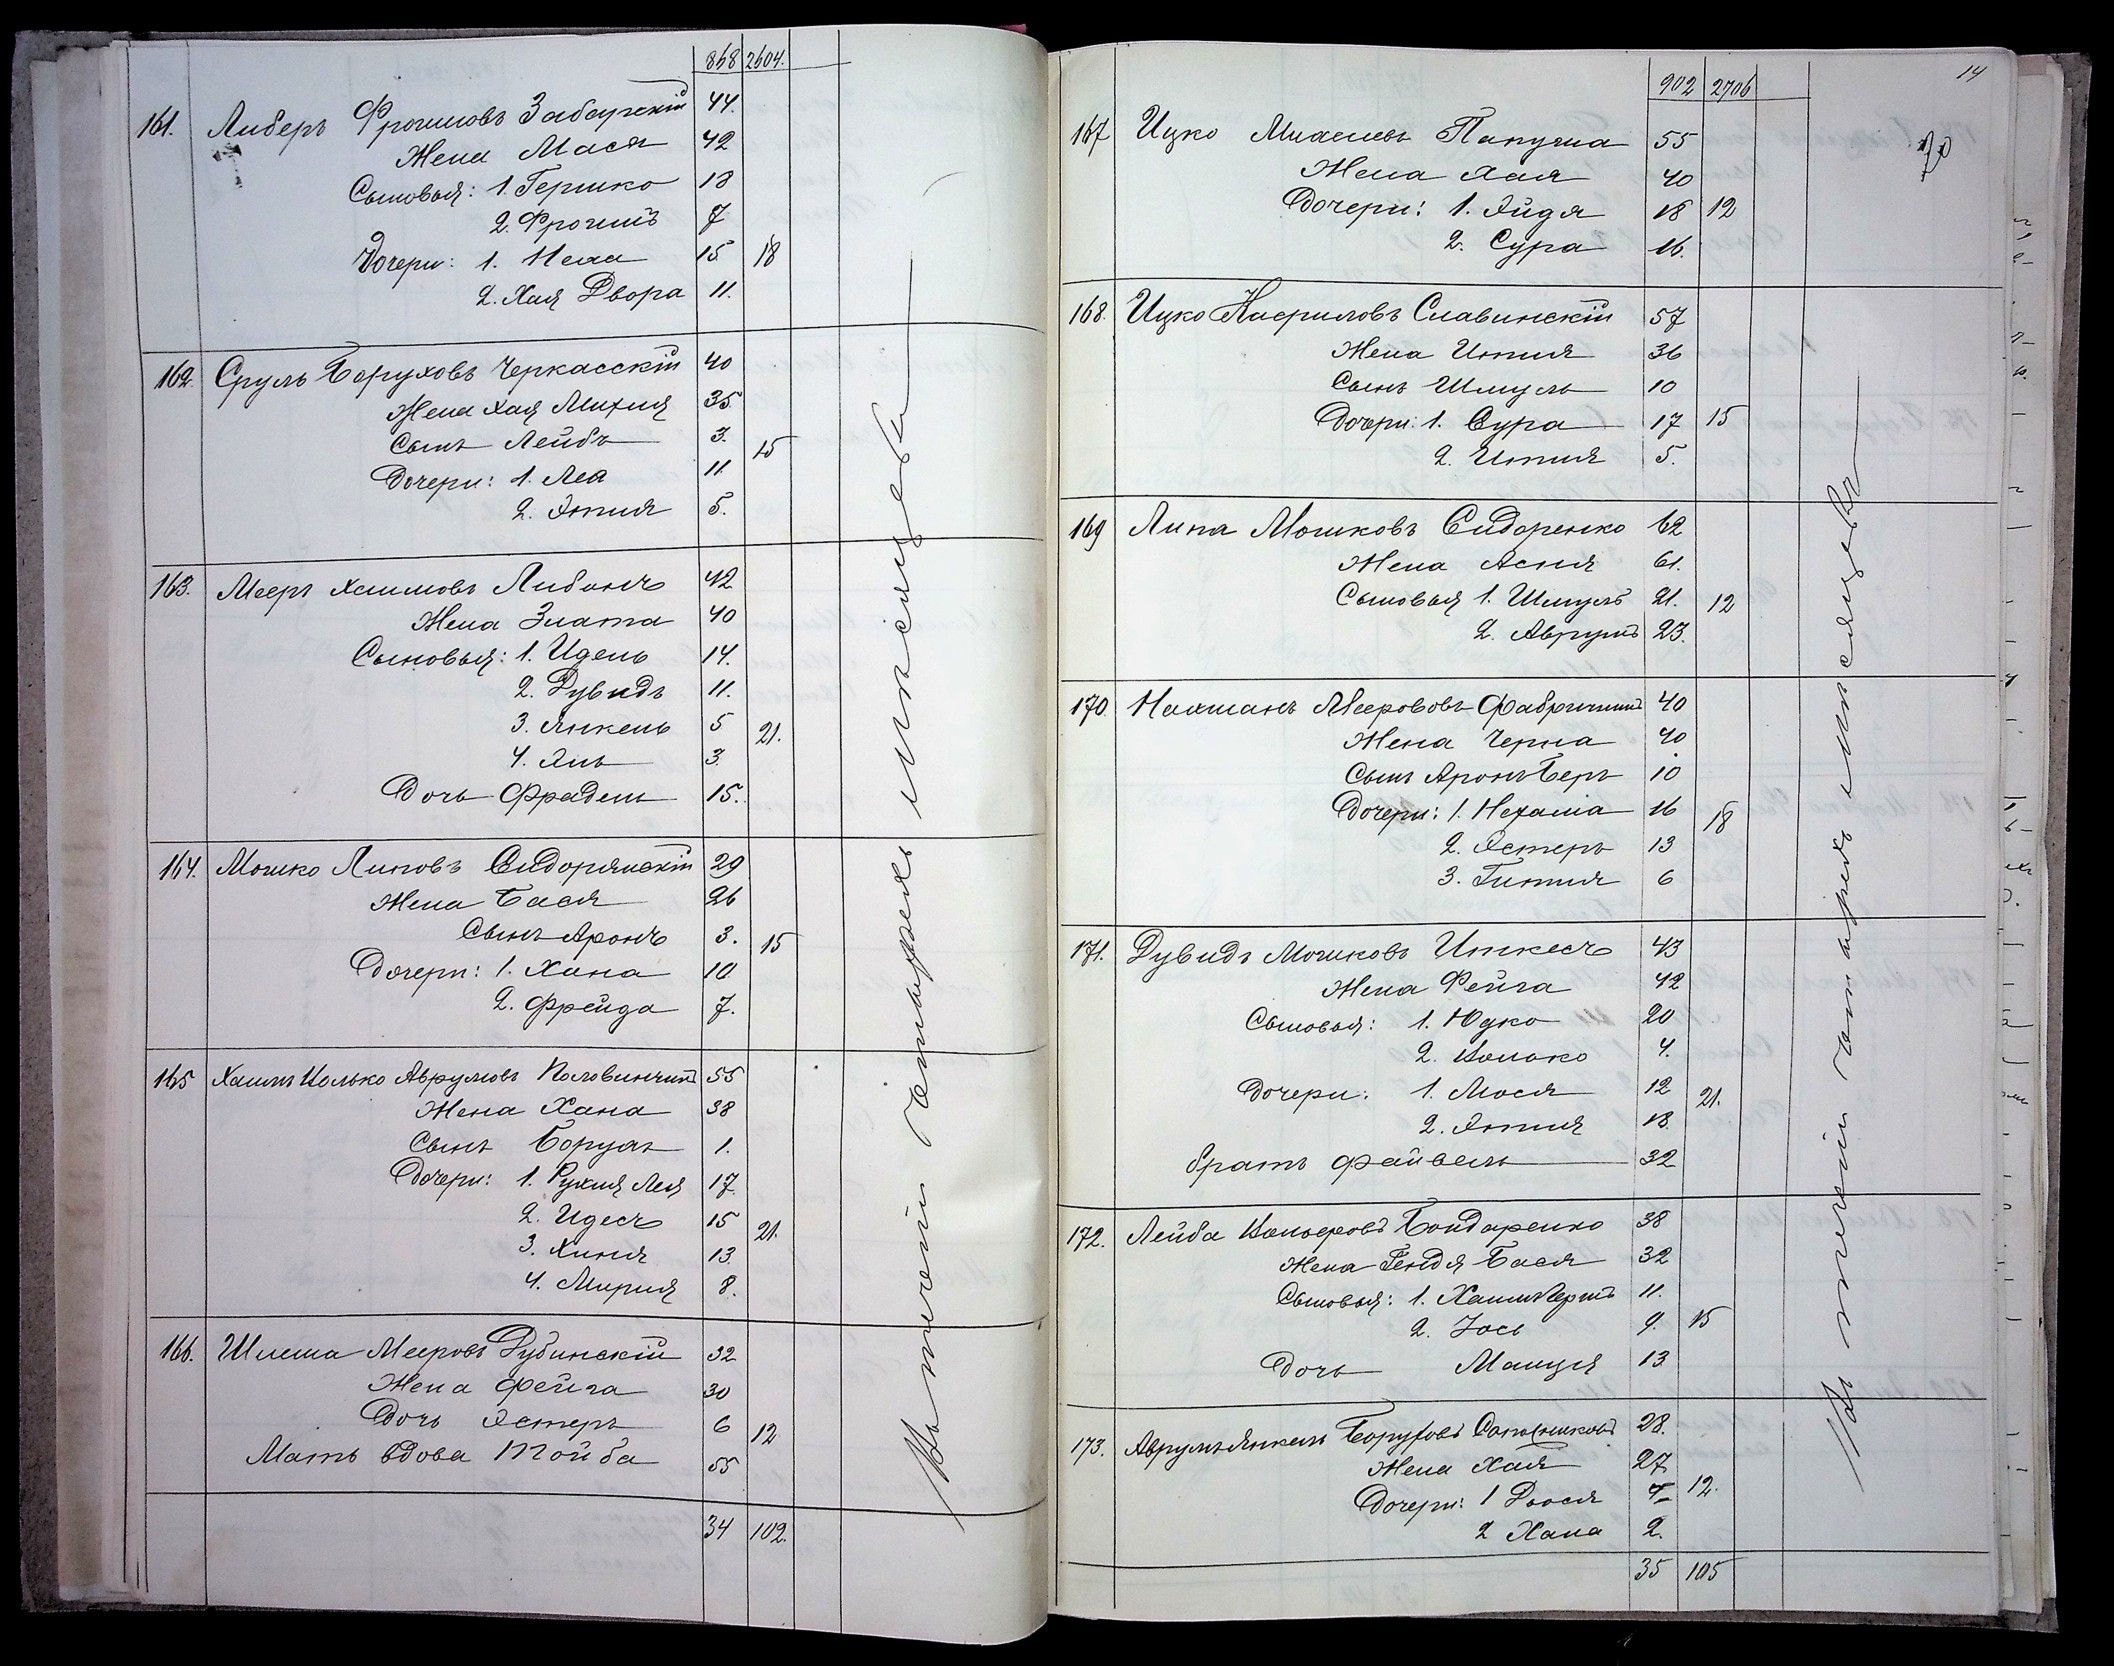 868 2604.
161. Либеръ Фроимовъ Заборскій 44.
Жена Мася 42
Сыновья: 1. Гершко 18
2. Фроимъ 7
Дочери: 1. Неха 15 18
2. Хая Двора 11.
162. Сруль Борухов Черкасскій 40
Жена Хая Михля 35
Сынъ Лейбъ 3. 15
Дочери: 1. Лея 11.
2. Этля 5.
163. Мееръ Хаимовъ Либанъ 42
Жена Злата 40
Сыновья: 1. Идель 14.
2. Дувидъ 11.
3. Янкель 5 21.
4. Эль 3.
Дочь Фрадель 15.
164. Мошко Липовъ Сидорянскій 29
Жена Бася 26
Сынъ Аронъ 3. 15
Дочери: 1. Хана 10
2. Фрейда 7.
165 Хаимъ Цалько Аврумовъ Половинчикъ 55
Жена Хана 38
Сынъ Борухъ 1.
Дочери: 1. Рухля Лея 17.
2. Идесъ 15 21.
3. Хиня 13.
4. Мирия 8.
166. Шлема Мееровъ Дубинскій 32
Жена Фейга 30
Дочь Эстеръ 6 12
Мать вдова Тойба 55
34 102.
Въ теченіи четырехъ мѣсяцевъ
14
902 2706
167 Ицко Папуша 55
Жена Хая 40
Дочери: 1. Эйдя 18 12
2. Сура 16.
168. Ицко Славинскій 57
Жена Ития 36
Сынъ Шмуль 10
Дочери: 1. Сура 17 15
2. Ития 5.
169 Липа Мошковъ Сидоренко 62
Жена Асня 61.
Сыновья 1. Шмуль 21. 12
2. Аврумъ 23.
170. Нахманъ Мееровъ Фабричникъ 40
Жена Черна 40
Сынъ Аронъ Беръ 10
Дочери: 1. Нехама 16 18
2. Эстеръ 13
3. Гитля 6
171. Дувидъ Мошковъ Иткесъ 43
Жена Фейга 42
Сыновья: 1. Юдко 20
2. Цалько 4.
Дочери: 1. Мося 12 21.
2. Этля 18.
братъ Файвель 32
172. Лейба Бондаренко 38
Жена Гендя Бася 32
Сыновья: 1. Хаим 11.
2. Іось 9. 15
Дочь Манця 13
173. Аврумъ Янкель Боруховъ Сапожниковъ 28.
Жена Хая 27
Дочери: 1 Двося 4 12.
2 Хана 2.
35 105
Въ теченіи четырехъ мѣсяцевъ